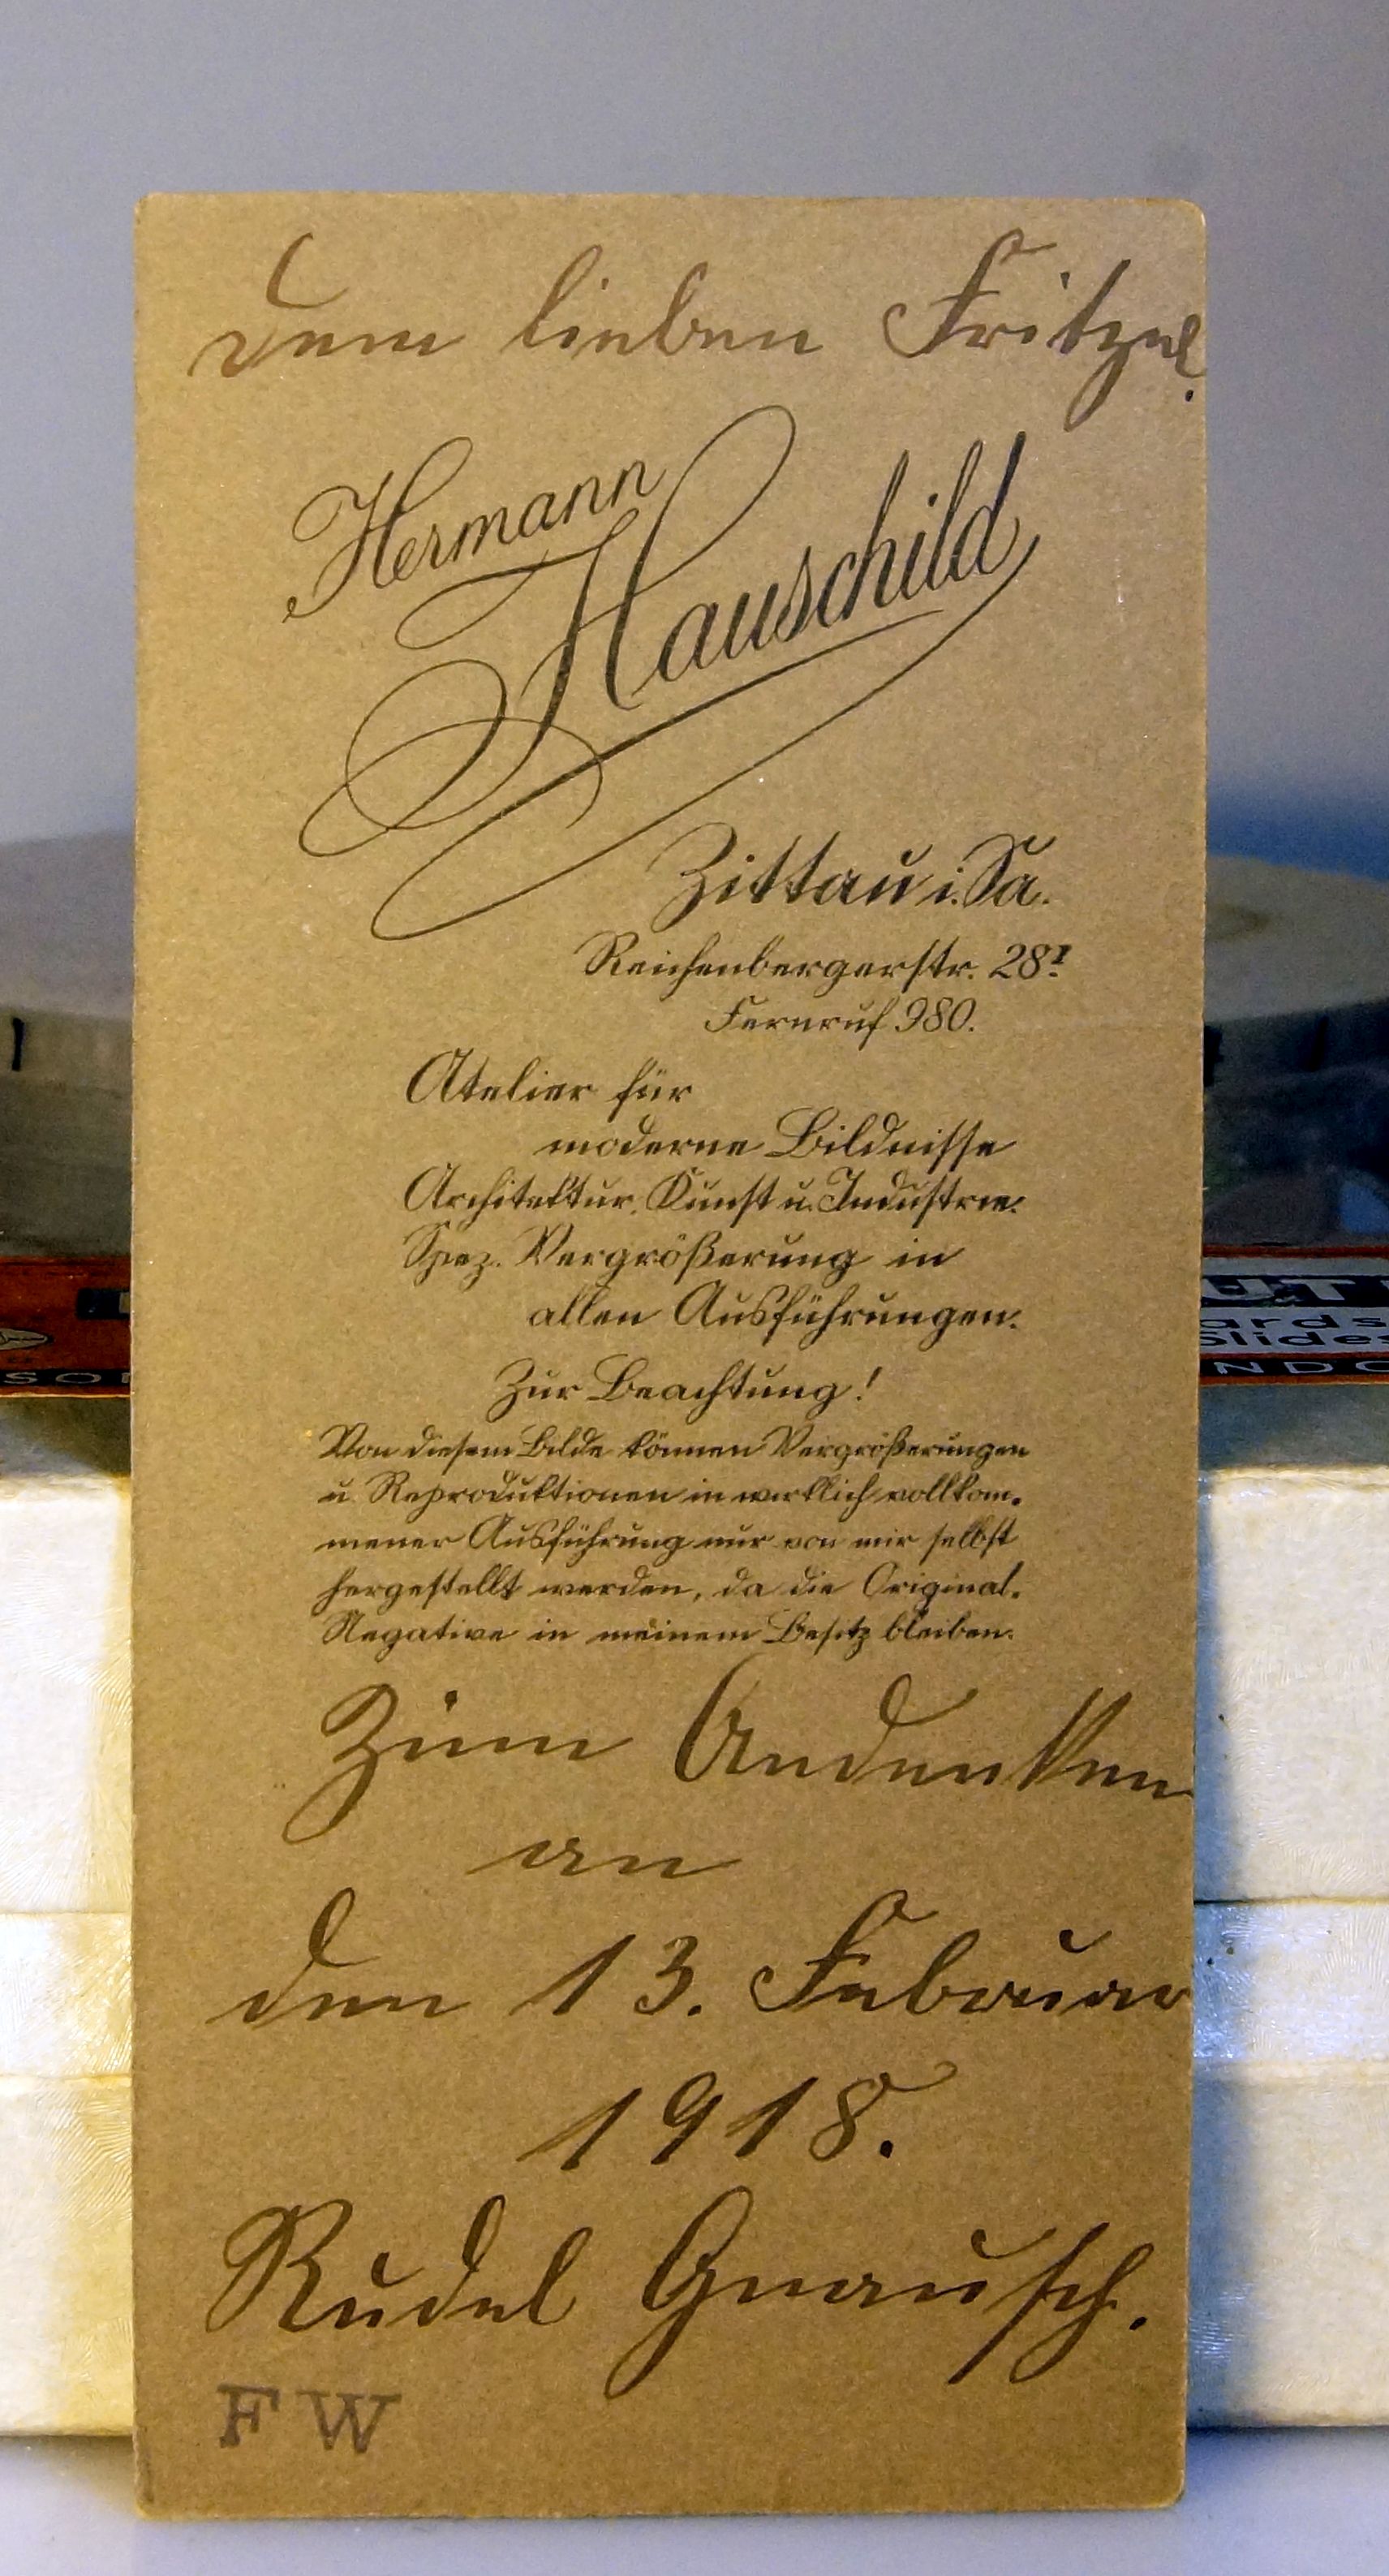 Dem lieben Fritzel.
Hermann
Hauschild
Zittau i. Sa.
Reichenbergerstr. 28 I.
Fernruf 980.
Atelier für
moderne Bildnisse
Architektur, Kunst u. Industrie.
Spez. Vergrößerung in
allen Ausführungen.
Zur Beachtung!
Von diesem Bilde können Vergrößerungen
u. Reproduktionen in wirklich vollkom-
mener Ausführung nur von mir selbst
hergestellt werden, da die Original-
Negative in meinem Besitz bleiben.
Zum Andenken
an
den 13. Februar
1918.
Rudel Gnausch.
F W
ards
Slides